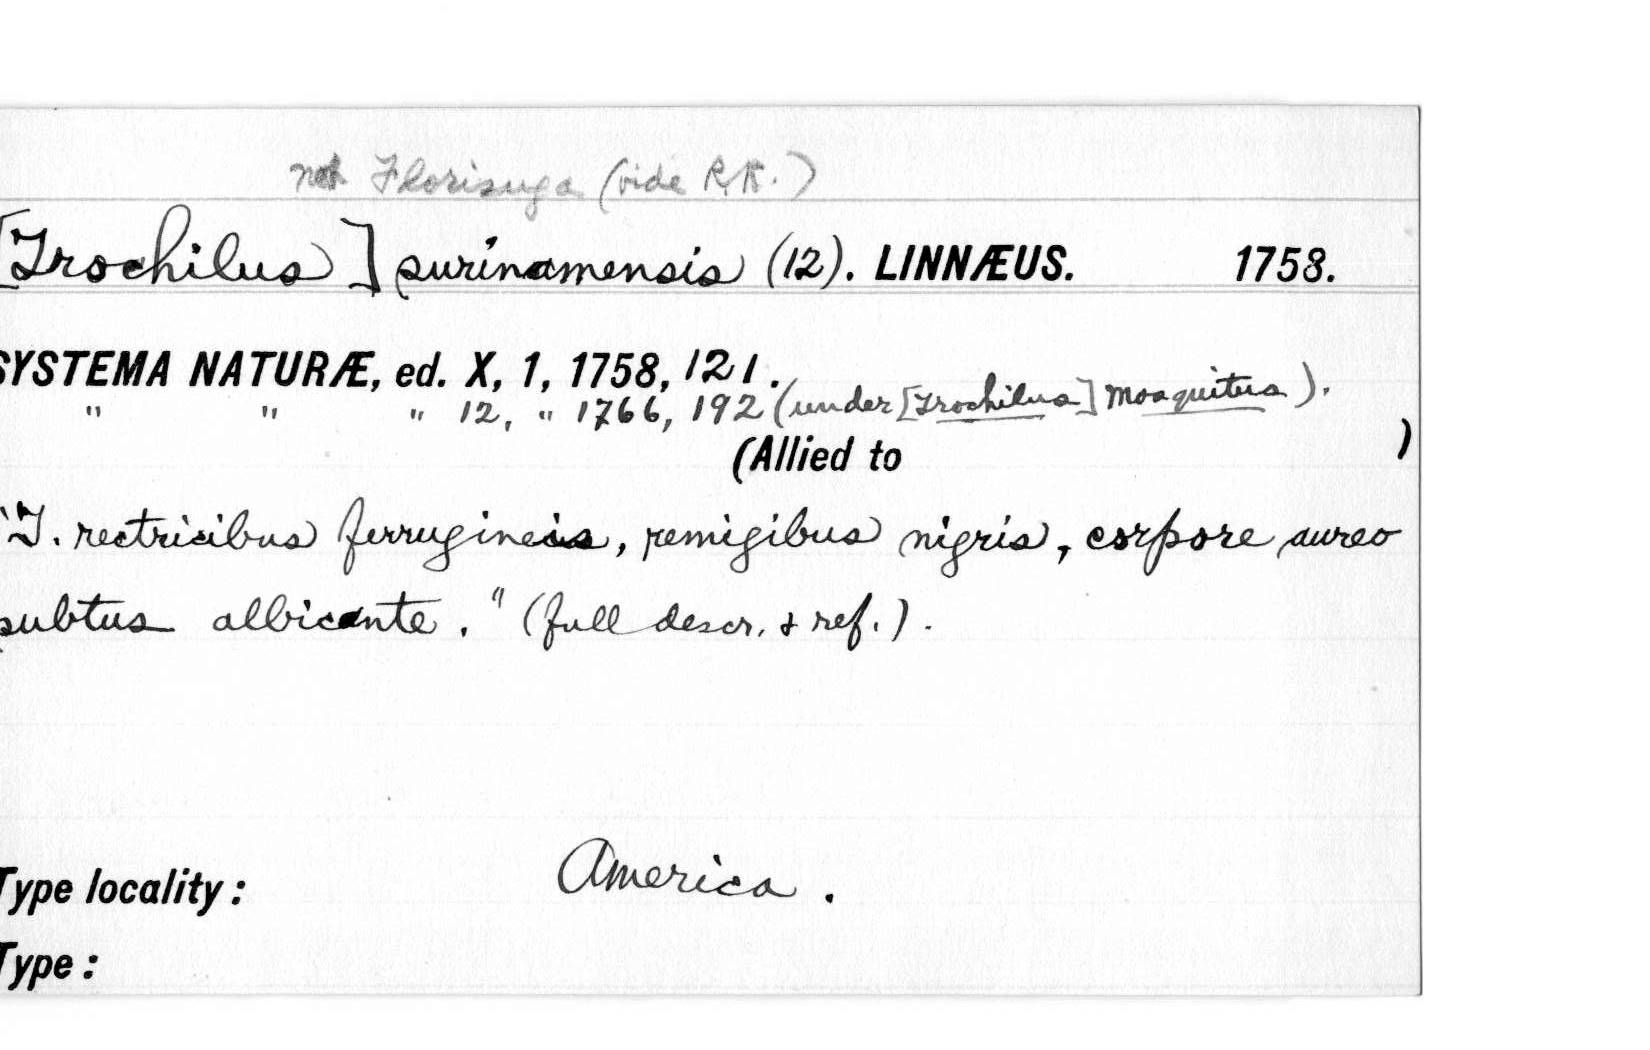 not Florisuga (vide R.R.)
[Trochilus] surinamensis (12). LINNÆUS. 1758.
SYSTEMA NATURÆ, ed. X, 1, 1758, 121.
" " " 12, " 1766, 192 (under [Trochilus] Mosquitus).
(Allied to )
"T. rectricibus ferrugineis, remigibus nigris, corpore aureo
subtus albicante." (full descr. & ref.).
Type locality: America.
Type: